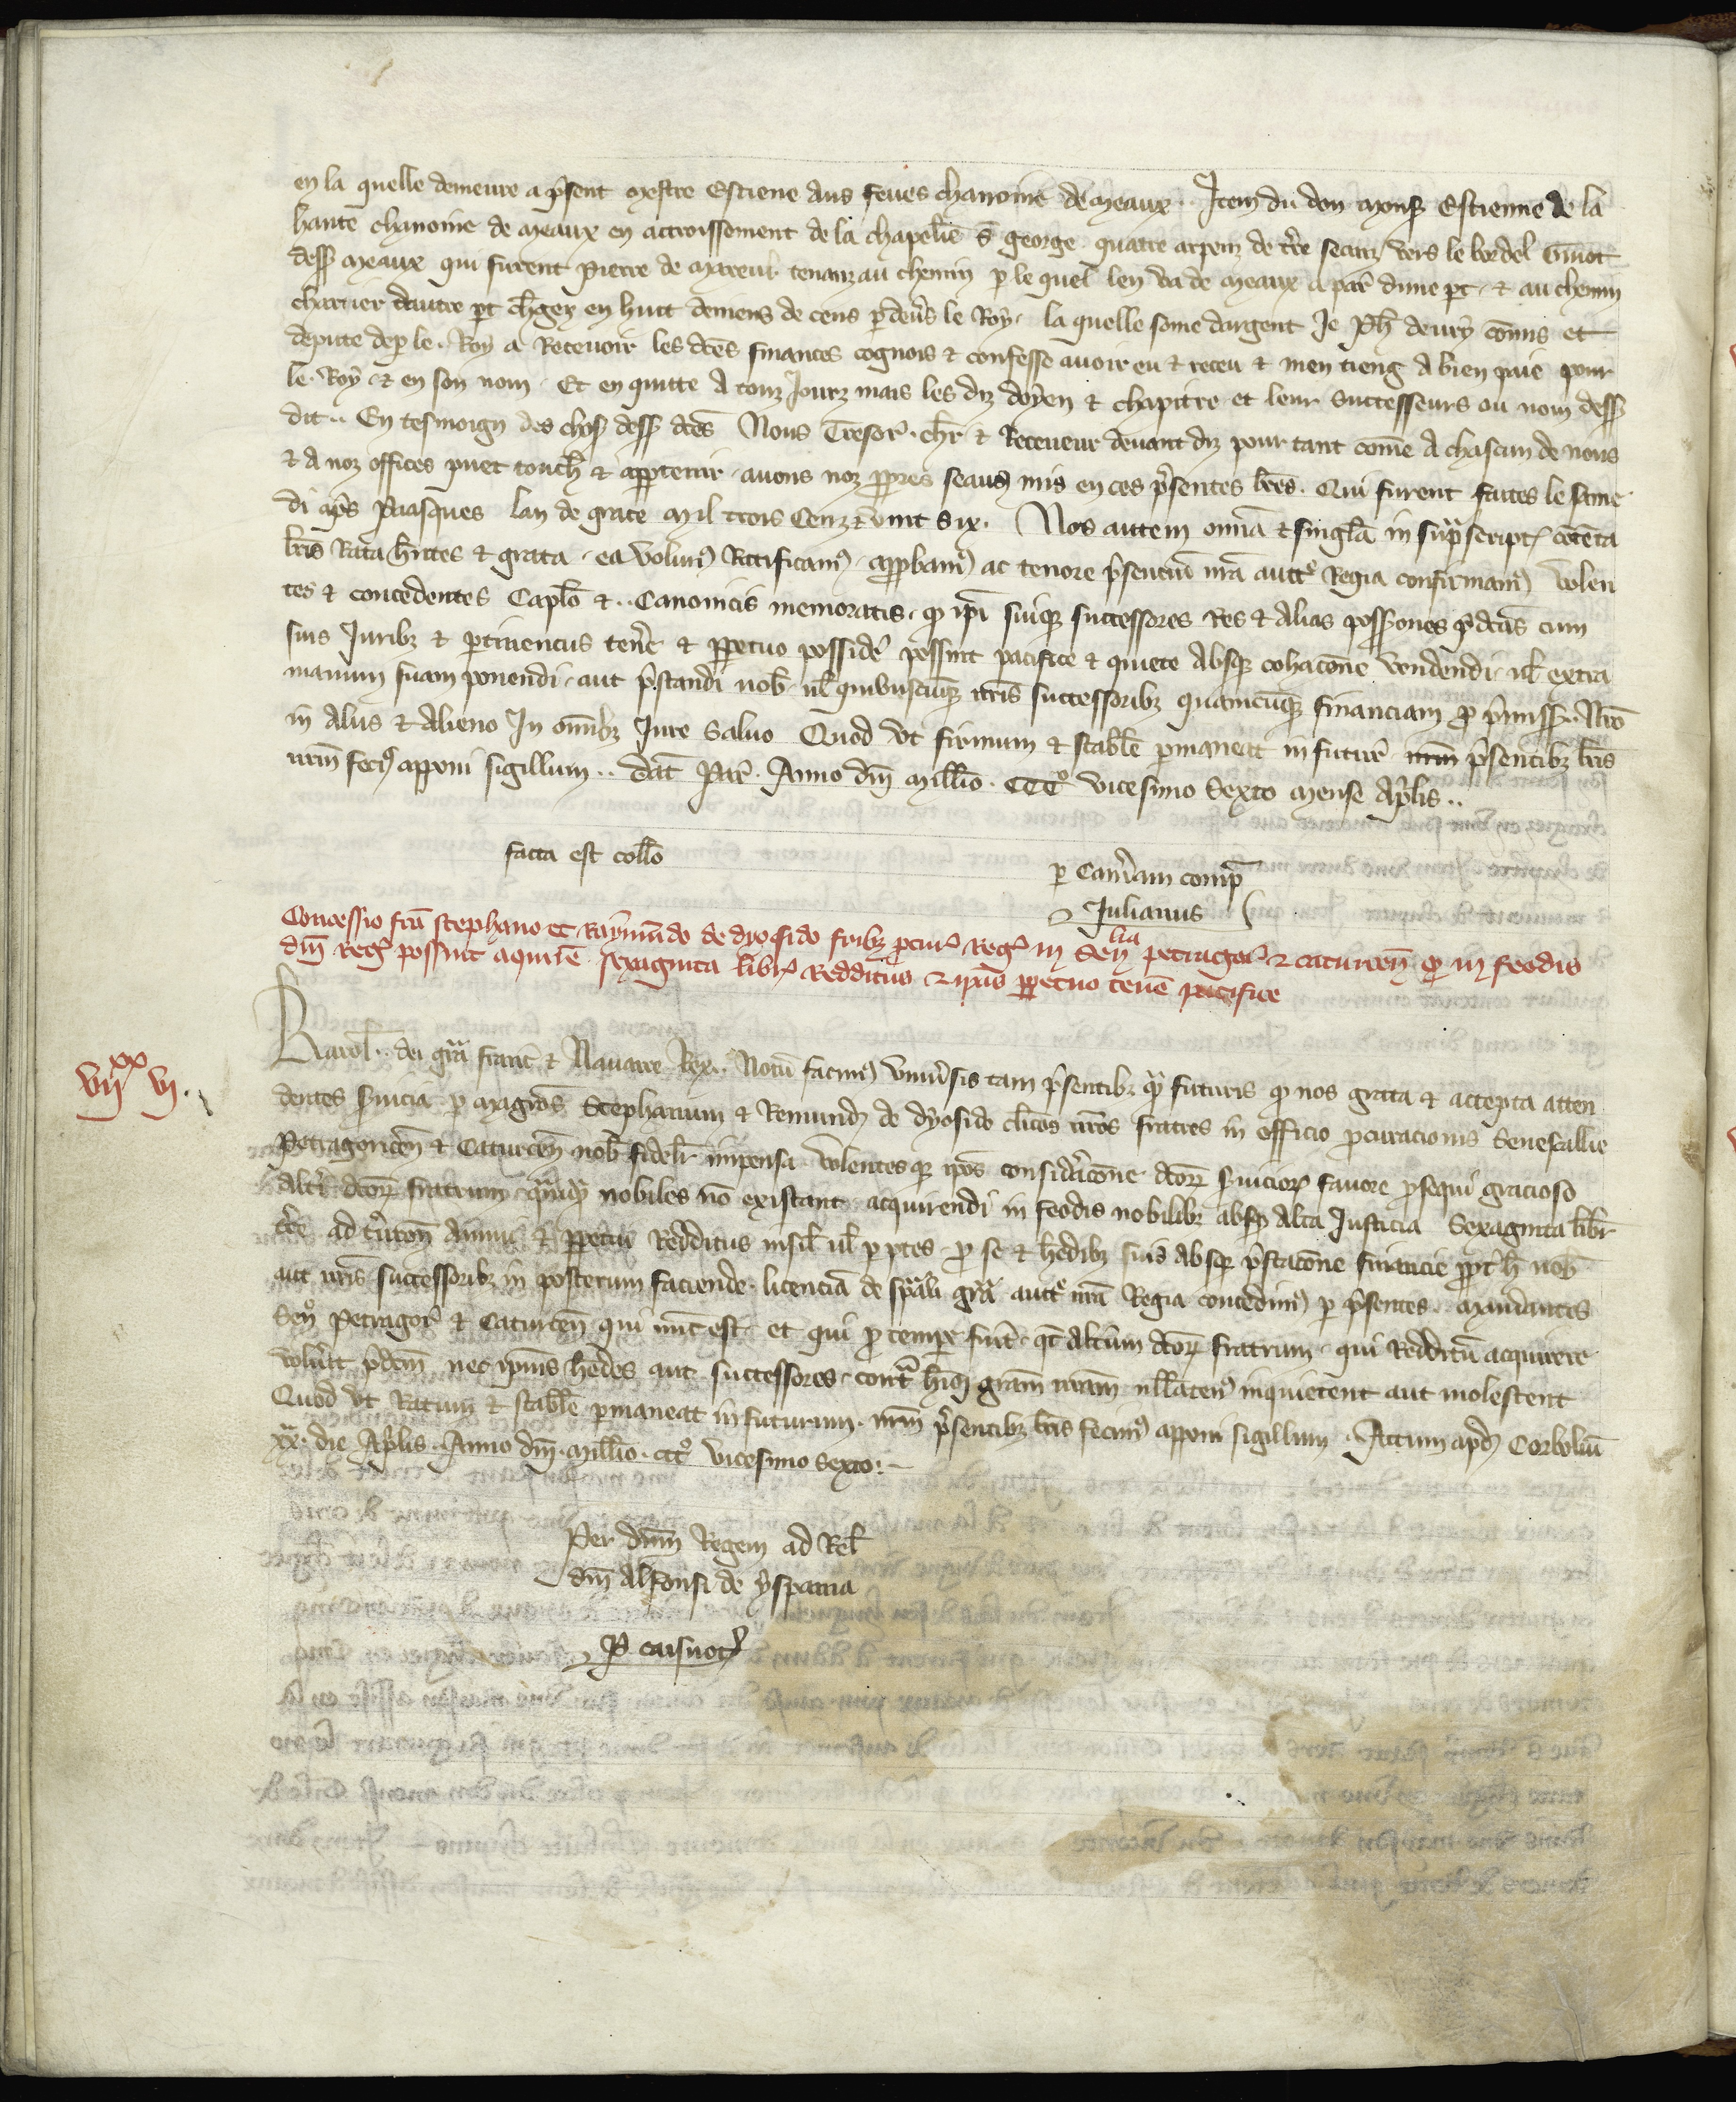 en la quelle demeure a p̄sent mestre Estiene aus feves chanoine de meaux. Item du don mons̄ Estienne de la
hante chanoine de meaux en accroissement de la chapelēie s̄ george quatre arpenz de tr̄re seanz vers le bordel Guiot
dess̄ meaux qui furent Pierre de mareul tenanz au chemin p̄ le quel len va de meaux a par̄ dune p̄t et au chemin
charrier dautre p̄t ch̄gez en huit deniers de cens p̄deu̅s le Roy. la quelle some dargent Je ph̄ de comīs et
depute dep̄ le Roy a Recevoir les dc̄es finances cognois et confesse avoir eu et receu et men tieng a bien paie pour
le Roy et en son nom. Et en quitte a touz Jourz mais les diz doyen et chapitre et leur successeurs ou nom dess̄
dit.. En tesmoign des chos̄ dess̄ dc̄es Nous Tresor̄. ch̄r et Receveur devant diz pour tant com̄e a chascun de nous
et a noz offices puet touch̄ et app̄tenir avons noz pp̄res seaus mis en ces p̄sentes l̄res. Qui furent faites le same
di ap̄s Pasques lan de grace mil trois Cenz et vint six. Nos autem om̄ia et sinḡla in sup̄script̄ contēta
l̄ris Rata h̄ntes et grata ea volum̄ Ratificam̄ app̄bam̄ ac tenore p̄sentiū nr̄a auct̄e Regia confirmam̄ volen
tes et concedentes Capl̄o et .. Canonicis memoratis. q̄ ip̄i suiq̄ successores Res et alias poss̄iones p̄dc̄as cum
suis Juribȝ et p̄tinenciis tenēr et pp̄etuo possidēr possint pacifice et quiete absq̄ cohac̄one vendendi ul̄ extra
manum suam ponendi. aut p̄standi nob̄ ul̄ quibuscūq̄ nr̄is successoribȝ quamcūq̄ financiam p̄ p̄miss̄.. Nr̄o
in aliis et alieno In om̄ibȝ Jure Salvo Quod ut firmum et stabīle p̄maneat in futur̄ nr̄m p̄sentibȝ l̄ris
nr̄m fec̄ apponi sigillum.. Dat̄ Par̄. Anno dn̄i mill̄io CCC° vicesimo Sexto mense Ap̄lis..
facta est coll̄o
p̄ Cam̄am comp̄
Julianus
Concessio fc̄a stephano et Raymundo de dyosido fr̄ibȝ p̄cur̄ Reg̅ in Sen̄
lia
petragor̄ et caturcen̄ q̄ in feodis
dn̄i Reg̅ possint aquir̄e sexaginta libr̄ Redditus et ip̄as pp̄etuo tenēr pacifice
vij xx vj.
Karol̄.. dei grā franc̄ et Navarre Rex.. Notū facim̄ univ̄sis tam p̄sentibȝ q̄ futuris q̄ nos grata et accepta atten
dentes s̄vicia p̄ magrōs Stephanum et Remundȝ de dyosido cl̄icos nr̄os fratres in officio p̄curacionis Senescallie
Petragoricen̄ et Caturcen̄ nob̄ fidelr̄ impensa volentesq̄ ip̄os consid̄ac̄one dc̄or̄ s̄vicior̄ favore p̄sequi gracioso
alt̄i dc̄or̄ fratrum q̄mq̄ nobiles nō existant acquirendi in feodis nobilibȝ absq̄ alta Justicia Sexaginta libr̄
tr̄re ad turon̄ annui et pp̄etui Redditus insil̄ ul̄ p̄ p̄tes p̄ se et h̄edibȝ suis absq̄ p̄stac̄one financie pp̄t̄ h̄ nob̄
aut nr̄is successoribȝ in posterum faciende licenciā de sp̄ali grā auct̄e nr̄a Regia concedim̄ p̄ p̄sentes. mandantes
Sen̄ Petragor̄ et Caturcen̄ qui nūc est et qui p̄ tempe fuīt q̄t alt̄um dc̄or̄ fratrum qui Redditū acquirere
voluīt p̄dc̄m nec ip̄ius h̄edes aut successores. cont̄ h̄mōi gram̄ nr̄am ull̄aten̄ inquietent aut molestent
Quod ut Ratum et stabīle p̄maneat in futurum nr̄m p̄sentibȝ l̄ris fecim̄ apponi sigillum. Actum apdȝ Corboliū
xx. die Ap̄lis. Anno dn̄i mill̄io. ccc° vicesimo Sexto:
Per dn̄m Regem ad Rel̄
dn̄i Alfonsi de yspania
P. caisnot̄